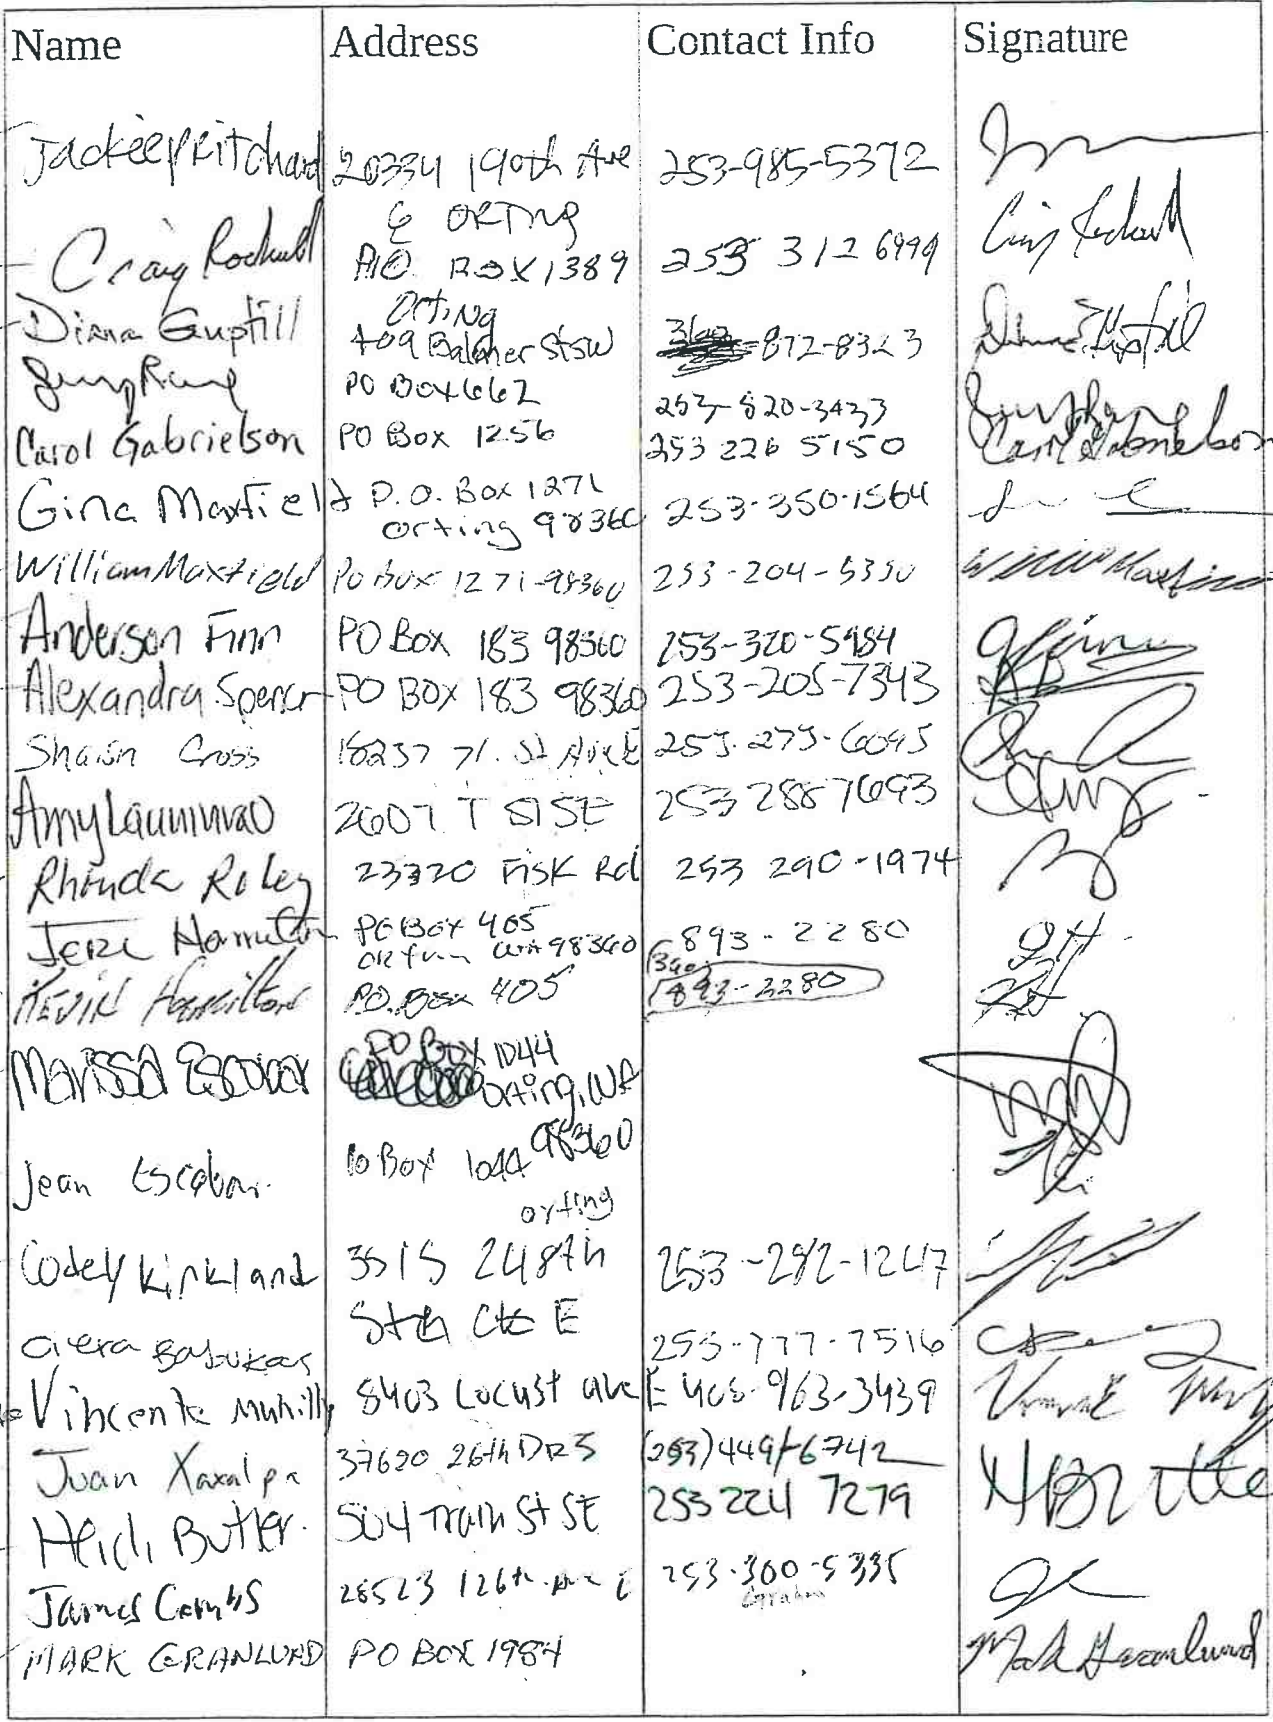 Name Address Contact Info Signature
Jackee Pritchard 20334 190th Ave 253-985-5372
E ORTING
Craig Rockwell P.O. BOX 1389 253 312 6999 Craig Rockwell
Orting
Diana Guptill 409 Balmer St SW 360-872-8323 Diana Guptill
PO Box 662 253-820-3433
Carol Gabrielson PO Box 1256 253 226 5150 Carol Gabrielson
Gina Maxfield P.O. Box 1271 253-350-1564
Orting 98360
William Maxfield PO Box 1271-98360 253-204-5350 William Maxfield
Anderson Finn PO Box 183 98360 253-320-5984
Alexandra Spencer PO BOX 183 98360 253-205-7343
Shawn Cross 18237 71.st Ave E 253-273-6095
Amy 2607 T St SE 253 288 7693
Rhonda Roley 23320 Fisk Rd 253 290-1974
Jeri Hamilton PO Box 405 893-2280 JH
Orting WA 98360
Kevin Hamilton P.O. Box 405 (360) 893-2280 KH
Marissa Escobar PO Box 1044
Orting, WA
98360
Jean Escobar PO Box 1044
orting
Codey Kirkland 3515 248th 253-282-1247
St Ct E
253-777-7516
Vincente 8403 Locust ave E 408-963-3439
Juan Xaxalpa 37620 26th DR S (253) 449-6742
Heidi Butler 504 Train St SE 253 224 7279 H Butler
James Combs 28523 126th Ave E 253-300-5335
Graham
MARK GRANLUND PO BOX 1984 Mark Granlund